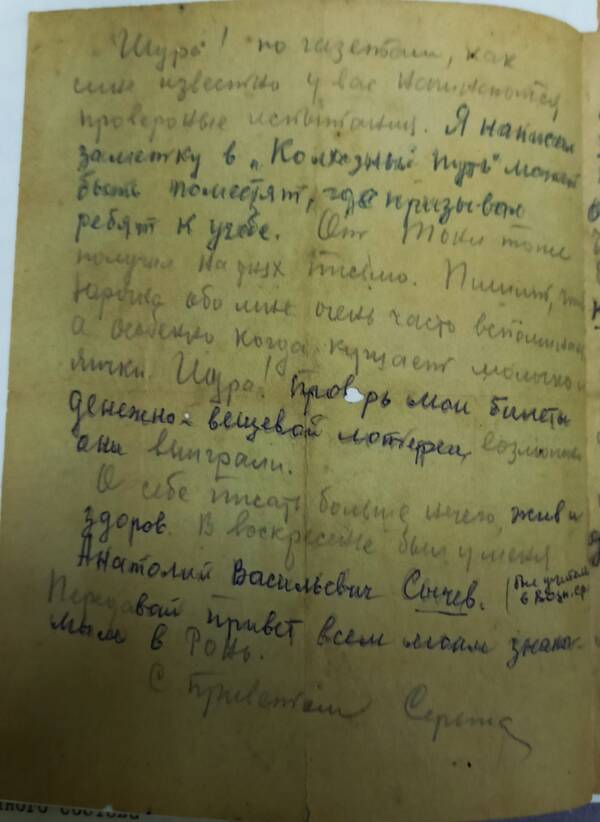 Шура! по газетам, как
мне известно у вас начинаются
проверочные испытания. Я написал
заметку в „Колхозный путь" может
быть поместят, где призывал
ребят к учебе. От Токи тоже
получил на днях письмо. Пишит, что
обо мне очень часто вспоминает
а особенно когда кушает молочко и
яички. Шура! Проверь мои билеты
денежной вещевой лотереи, возможно
они выиграли.
О себе писать больше нечего, жив и
здоров. В воскресение был у меня
Анатолий Васильевич Сычев. (был учителем
в
Передавай привет всем моим знако-
мым в Ронь.
С приветом Сережа
ного